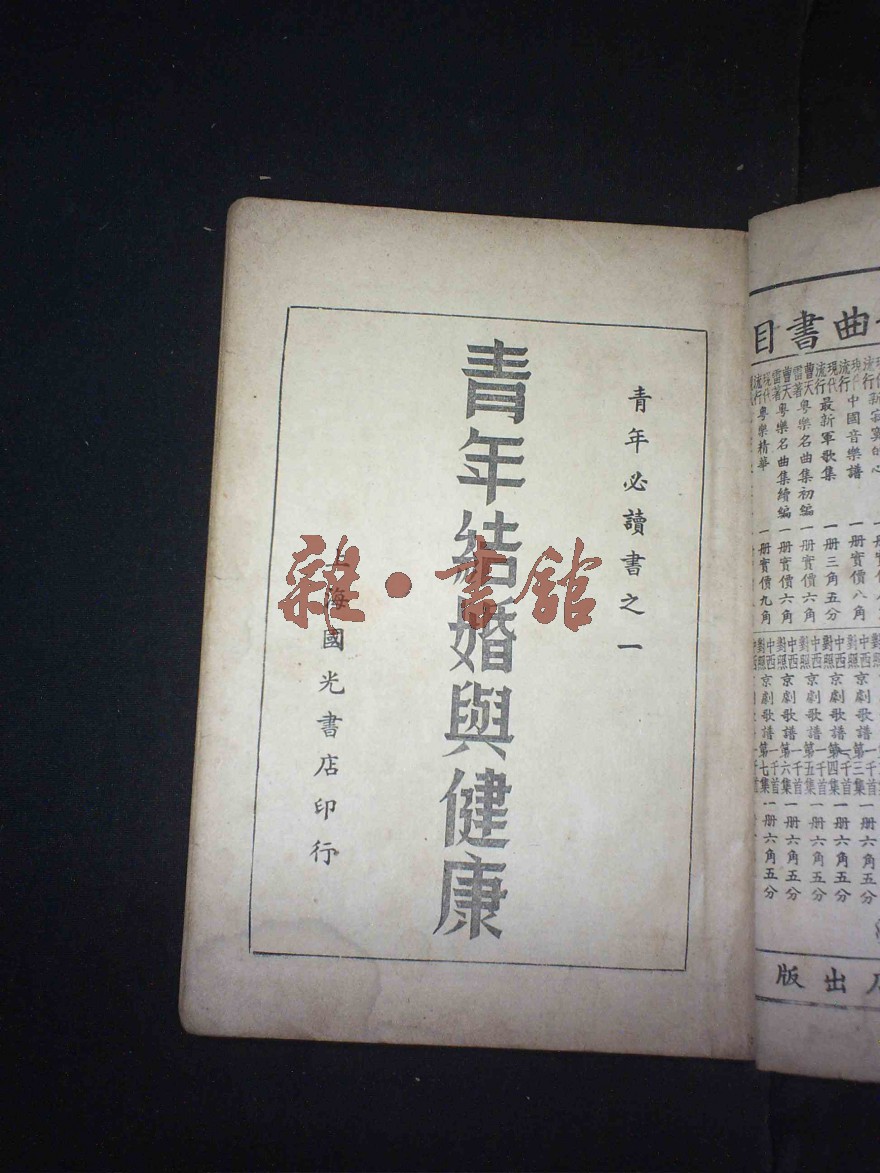 青年必讀書之一
青年結婚與健康
上海國光書店印行
雜·書館
曲書目
現代
流行
中國音樂譜 一册實價八角
現代
流行
最新軍歌集 一册三角五分
曹天
雷著
粵樂名曲集初編 一册實價六角
曹天
雷著
粵樂名曲集續編 一册實價六角
現代
流行
粵樂精華 一册實價九角
中西
對照
京劇歌譜一千首
第三集
一册六角五分
中西
對照
京劇歌譜一千首
第四集
一册六角五分
中西
對照
京劇歌譜一千首
第五集
一册六角五分
中西
對照
京劇歌譜一千首
第六集
一册六角五分
中西
對照
京劇歌譜一千首
第七集
一册六角五分
出版